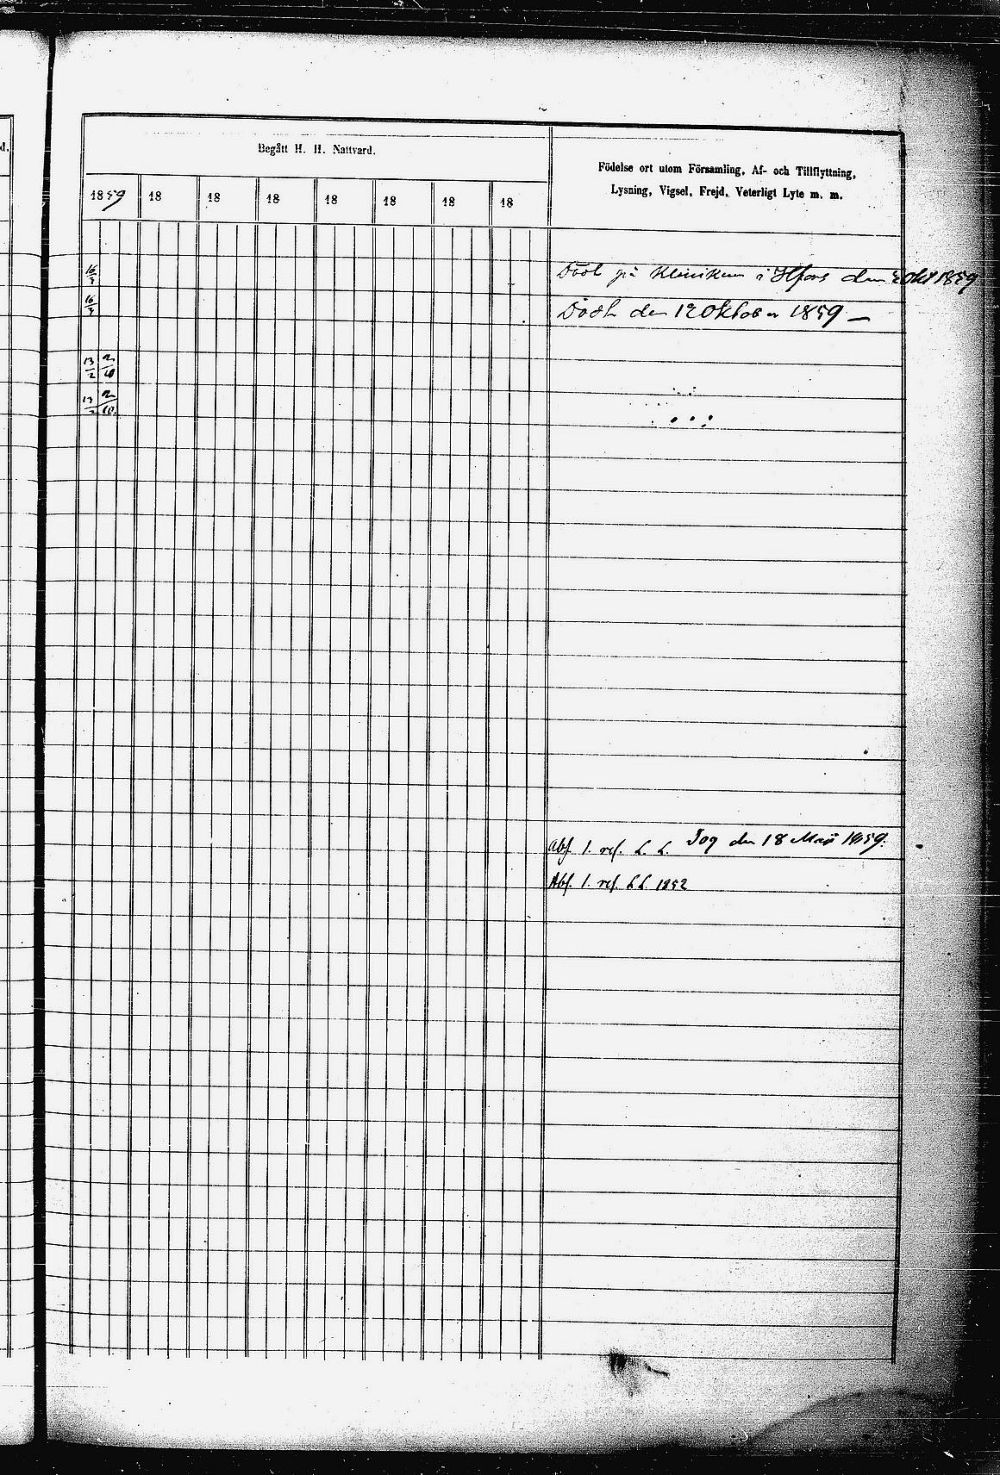 d.
Begått H. H. Nattvard.
Födelse ort utom Församling, Af- och Tillflyttning,
Lysning, Vigsel, Frejd, Veterligt Lyte m. m.
1859 18 18 18 18 18 18 18
16/3
Död på Kliniken i Hfors den 2 Okt 1859
16/3
Död den 12 Oktober 1859 —
13/2 2/10
13/2 2/10
Abs. 1. ref. L. L. Tog den 18 1859.
Abs. 1. ref. L L. 1852